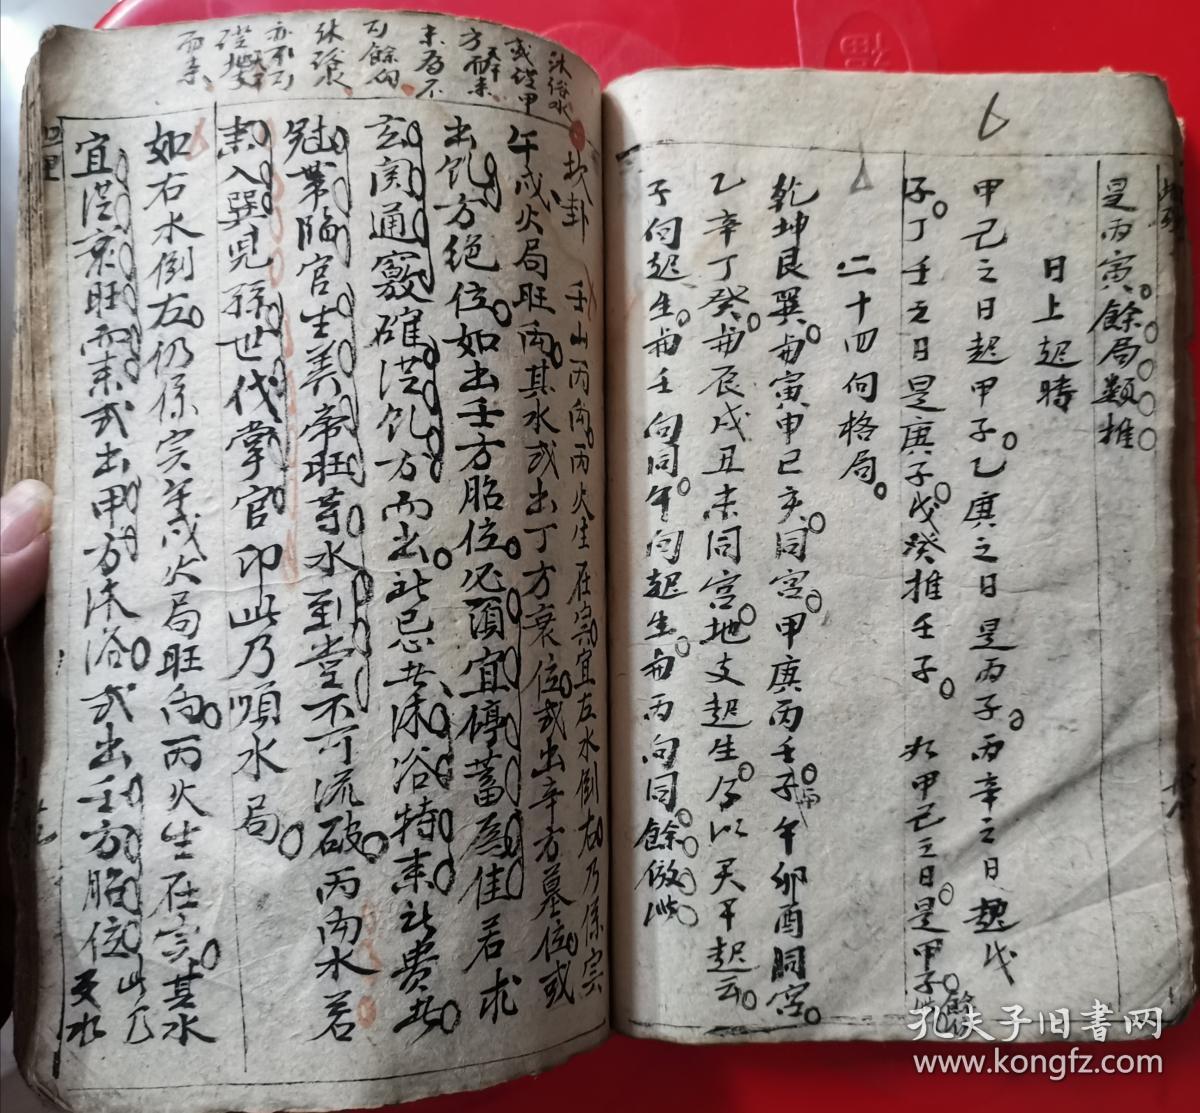 是丙寅餘局類推
日上起時
甲己之日起甲子乙庚之日是丙子丙辛之日起戊
子丁壬之日是庚子戊癸推壬子 如甲己之日是甲子餘仿此
二十四向格局
乾坤艮巽甪寅申巳亥同宮甲庚丙壬子午卯酉同宮
乙辛丁癸甪辰戌丑未同宮地支起生今以天干起云
子向起生甪壬向同午向起生甪丙向同餘倣此
沐浴水
或從甲
方而來
未有不
向
沐浴
亦不可
從地支
而來
坎卦 壬山丙向丙火生在寅宜左水倒右乃係寅
午戌火局旺向其水或出丁方衰位或出辛方墓位或
出乾方絕位如出壬方胎位必須宜停蓄爲佳若求
玄関通竅確從乾方而出此忌者沐浴特來
冠帶臨官生養帝旺等水到堂不可流破丙向水若
來入巽兒孫世代掌官印此乃順水局
如右水倒左仍係寅午戌火局旺向丙火生在寅其水
宜從衰旺而來或出甲方沐浴或出壬方胎位此乃
天水
孔夫子旧书网
www.kongfz.com